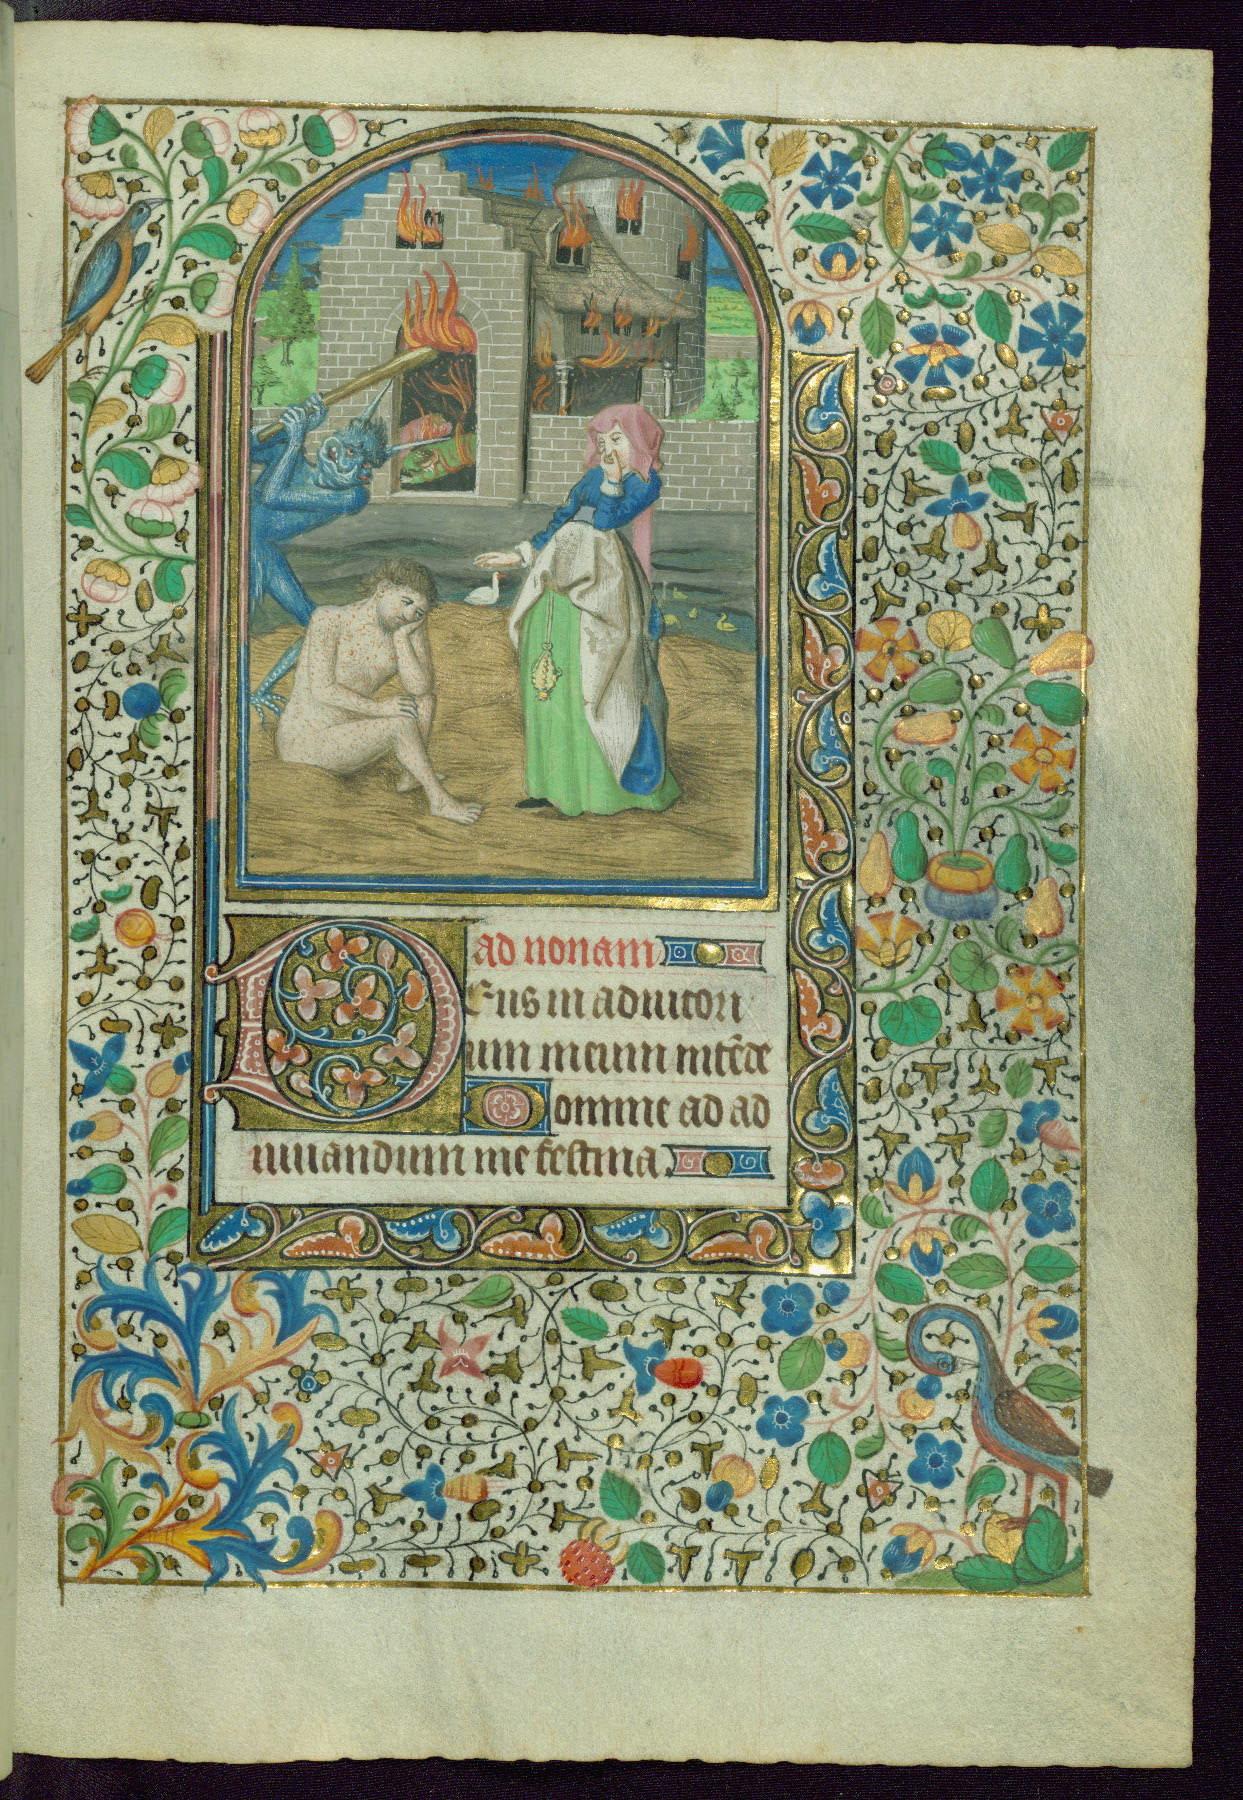 ad nonam
Deus in adiutori
um meum intēde
Domine ad ad
iuuandum me festina